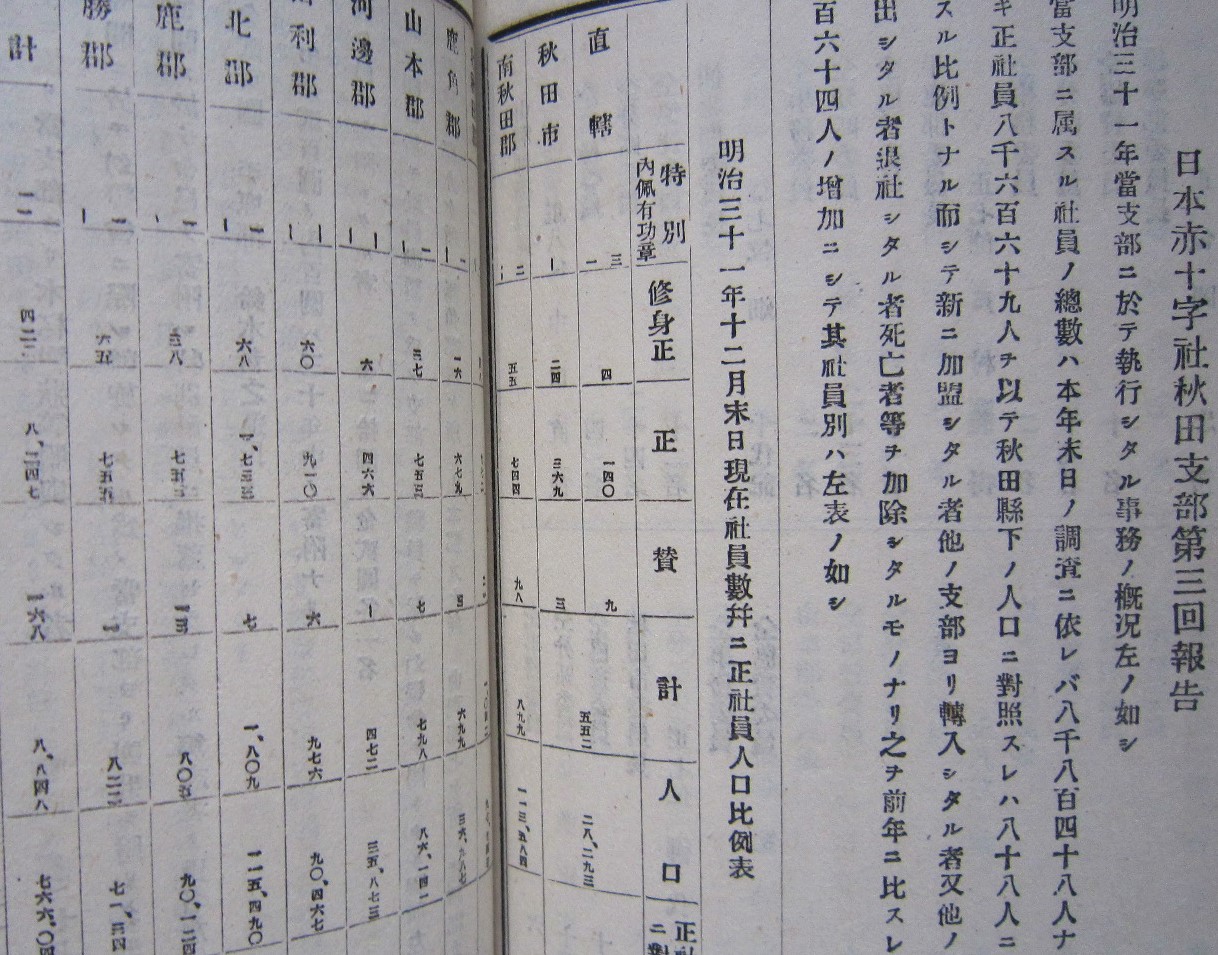 日本赤十字社秋田支部第三回報告
明治三十一年當支部ニ於テ執行シタル事務ノ概況左ノ如シ
當支部ニ属スル社員ノ總數ハ本年末日ノ調査ニ依レバ八千八百四十八人ナ
キ正社員八千六百六十九人チ以テ秋田縣下ノ人口ニ對照スレハ八十八人ニ
スル比例トナル而シテ新ニ加盟シタル者他ノ支部ヨリ轉入シタル者又他ノ
出シタル者退社シタル者死亡者等チ加除シタルモノナリ之チ前年ニ比スレ
百六十四人ノ増加ニシテ其社員別ハ左表ノ如シ
明治三十一年十二月末日現在社員數幷ニ正社員人口比例表
特別
內佩有功章
修身正
正
賛
計
人口
直轄 三 一 四 一四〇 九
秋田市 一 二四 三六九 三
五五二 二八、二九三
南秋田郡 二 五五 七四四 九八 八九九 一一三、五八四
鹿角郡 一六 六七九 四 六九九
山本郡 二 一 三七 七五三 七 七九八 八六、一四一
河邊郡 一 一 六 四六六 一 四七二 三五、八七三
利郡 一 一 六〇 九一〇 六 九七六 九〇、四六七
北 郡 二 一 六八 一、七三三 七 一、八〇九 一一五、四九〇
鹿郡 二 一 三八 七五三 一三 八〇五 九〇、一二四
勝郡 二 一 六五 七五五 一 八二三 七一、三四
計 一二 四二二 八、二四七 一六八 八、八四八 七六六、〇四